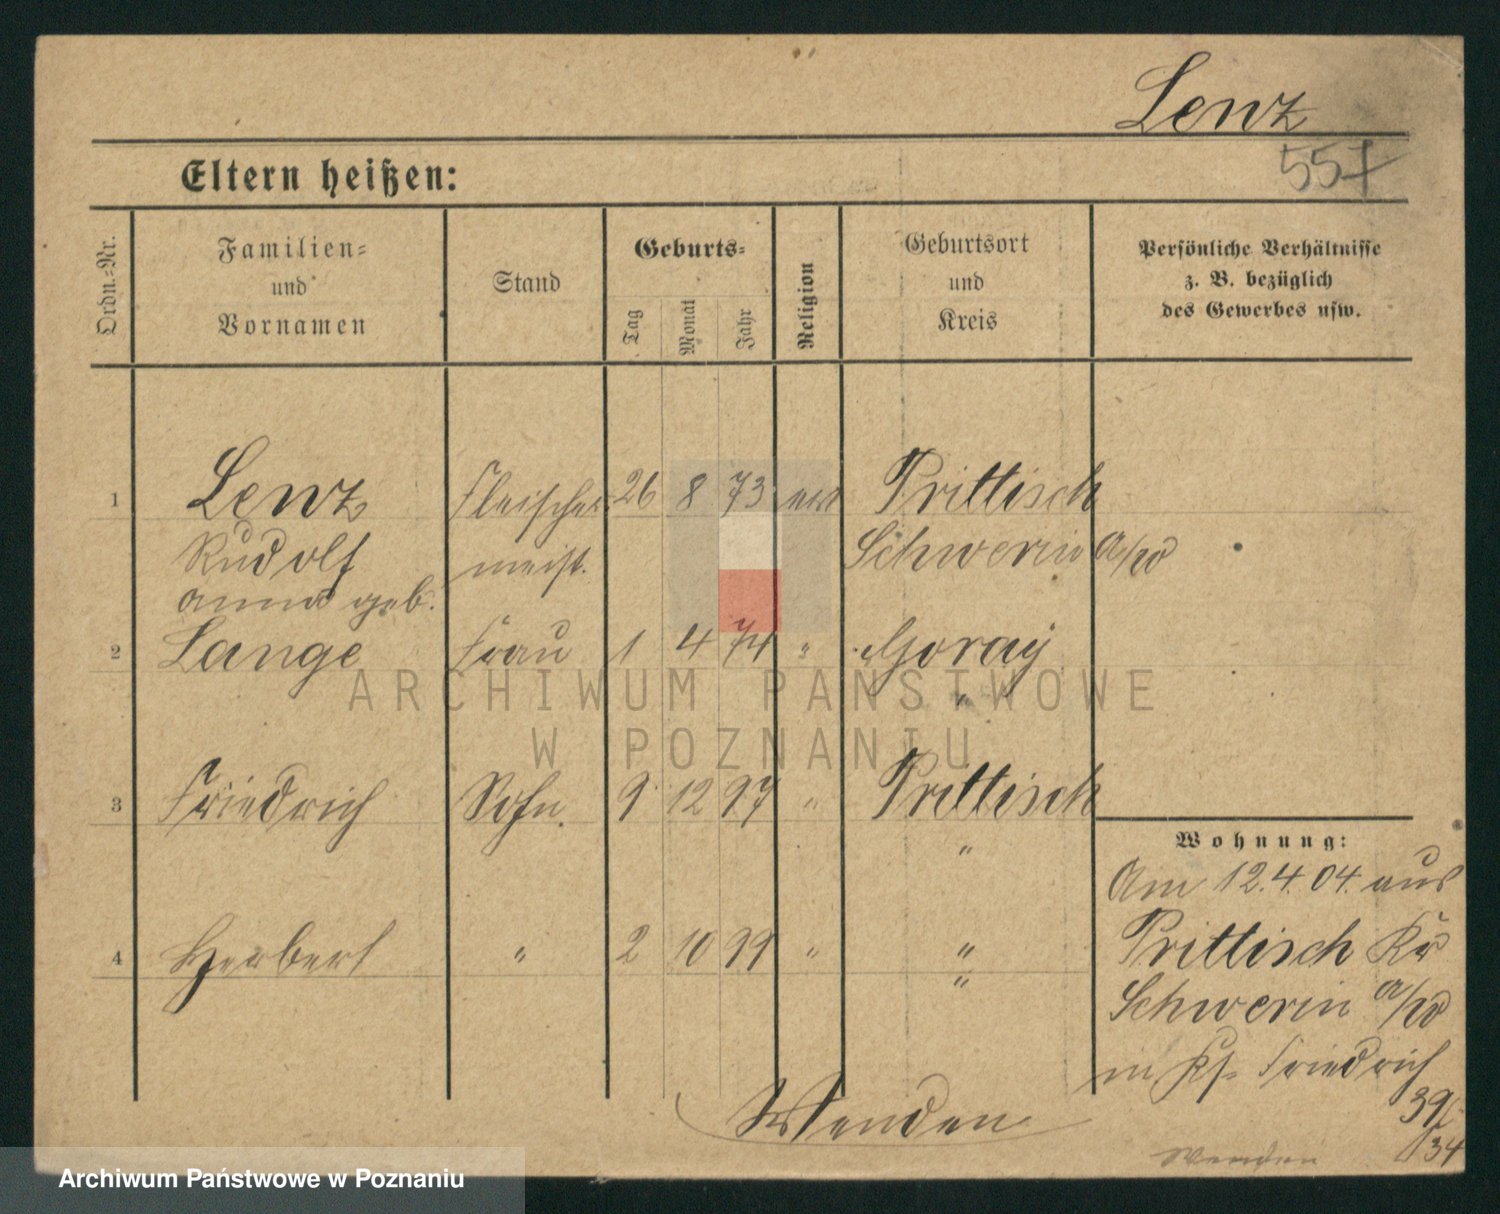 Lenz
557
Eltern heißen:
Ordn.-Nr.
Familien-
und
Vornamen
Stand
Geburts-
Tag
Monat
Jahr
Religion
Geburtsort
und
Kreis
Persönliche Verhältnisse
z. B. bezüglich
des Gewerbes usw.
1 Lenz Fleischer 26 8 73 ev Prittisch
Rudolf meist. Schwerin a/W
Anna geb.
2 Lange Frau 1 4 74 " Goray
"
3 Friedrich Sohn. 9 12 97 " Prittisch
"
4 Herbert " 2 10 99 " "
"
Wohnung:
Am 12.4.04. aus
Prittisch Kr
Schwerin a/W
in Friedrich
39
34
Wenden
Wenden
ARCHIWUM PAŃSTWOWE
W POZNANIU
Archiwum Państwowe w Poznaniu